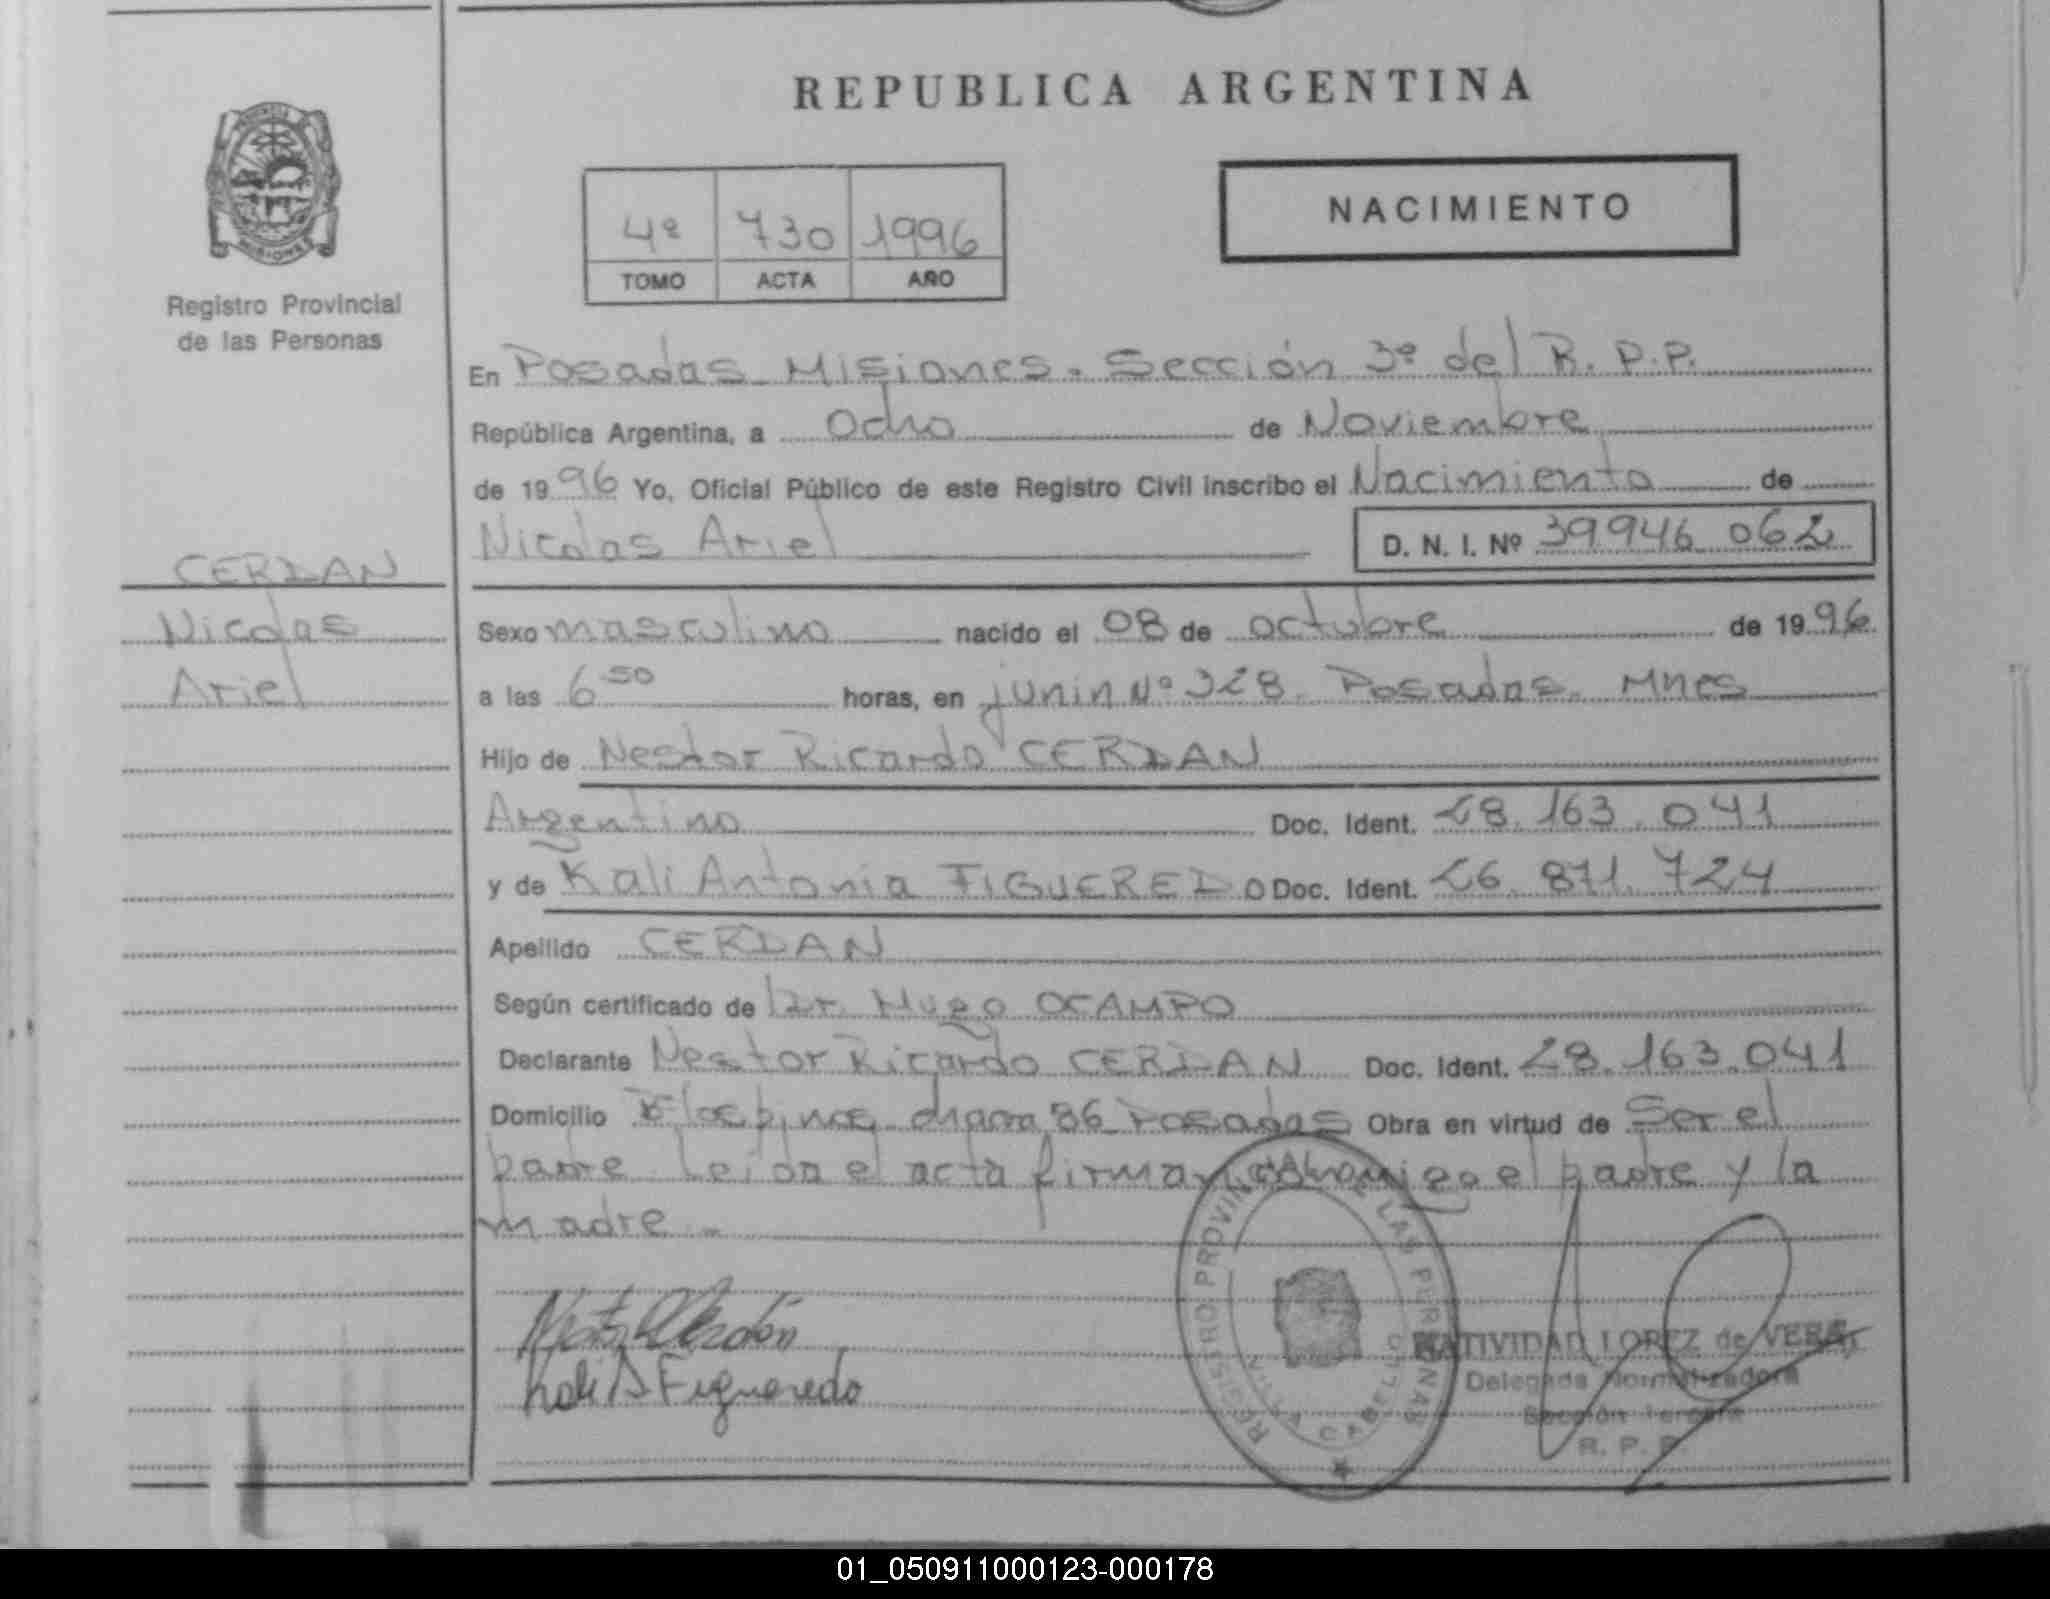 REPUBLICA ARGENTINA
NACIMIENTO
4º 730 1996
TOMO ACTA AÑO
Registro Provincial
de las Personas
En Posadas Misiones. Sección 3º del R. P. P.
República Argentina, a Ocho de Noviembre
de 1996 Yo, Oficial Público de este Registro Civil inscribo el Nacimiento de
Nicolas Ariel D. N. I. Nº 39946 062
CERDAN
Nicolas
Ariel
Sexo masculino nacido el 08 de octubre de 1996
a las 6 50 horas, en junin Nº 328. Posadas. Mnes
Hijo de Nestor Ricardo CERDAN
Argentino Doc. Ident. 28.163.041
y de Kali Antonia FIGUEREDO Doc. Ident. 26.871.724
Apellido CERDAN
Según certificado de Dr. Hugo OCAMPO
Declarante Nestor Ricardo CERDAN Doc. Ident. 28.163.041
Domicilio chacra 86 Posadas Obra en virtud de Ser el
padre Leida el acta firman conmigo el padre y la
madre.-
Kali A Figueredo
REGISTRO PROVINCIAL DE LAS PERSONAS
NATIVIDAD LOPEZ de VERA
Delegada Normalizadora
Sección Tercera
R. P. P.
01_050911000123-000178